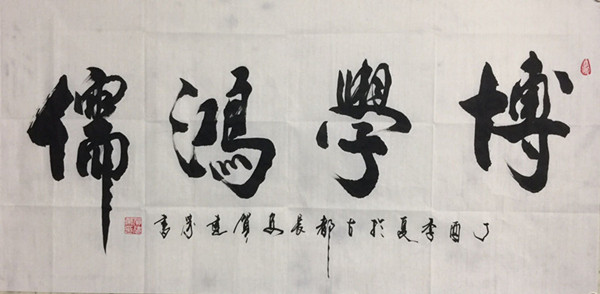 博學鴻儒
丁酉季夏於古都長安賀
書